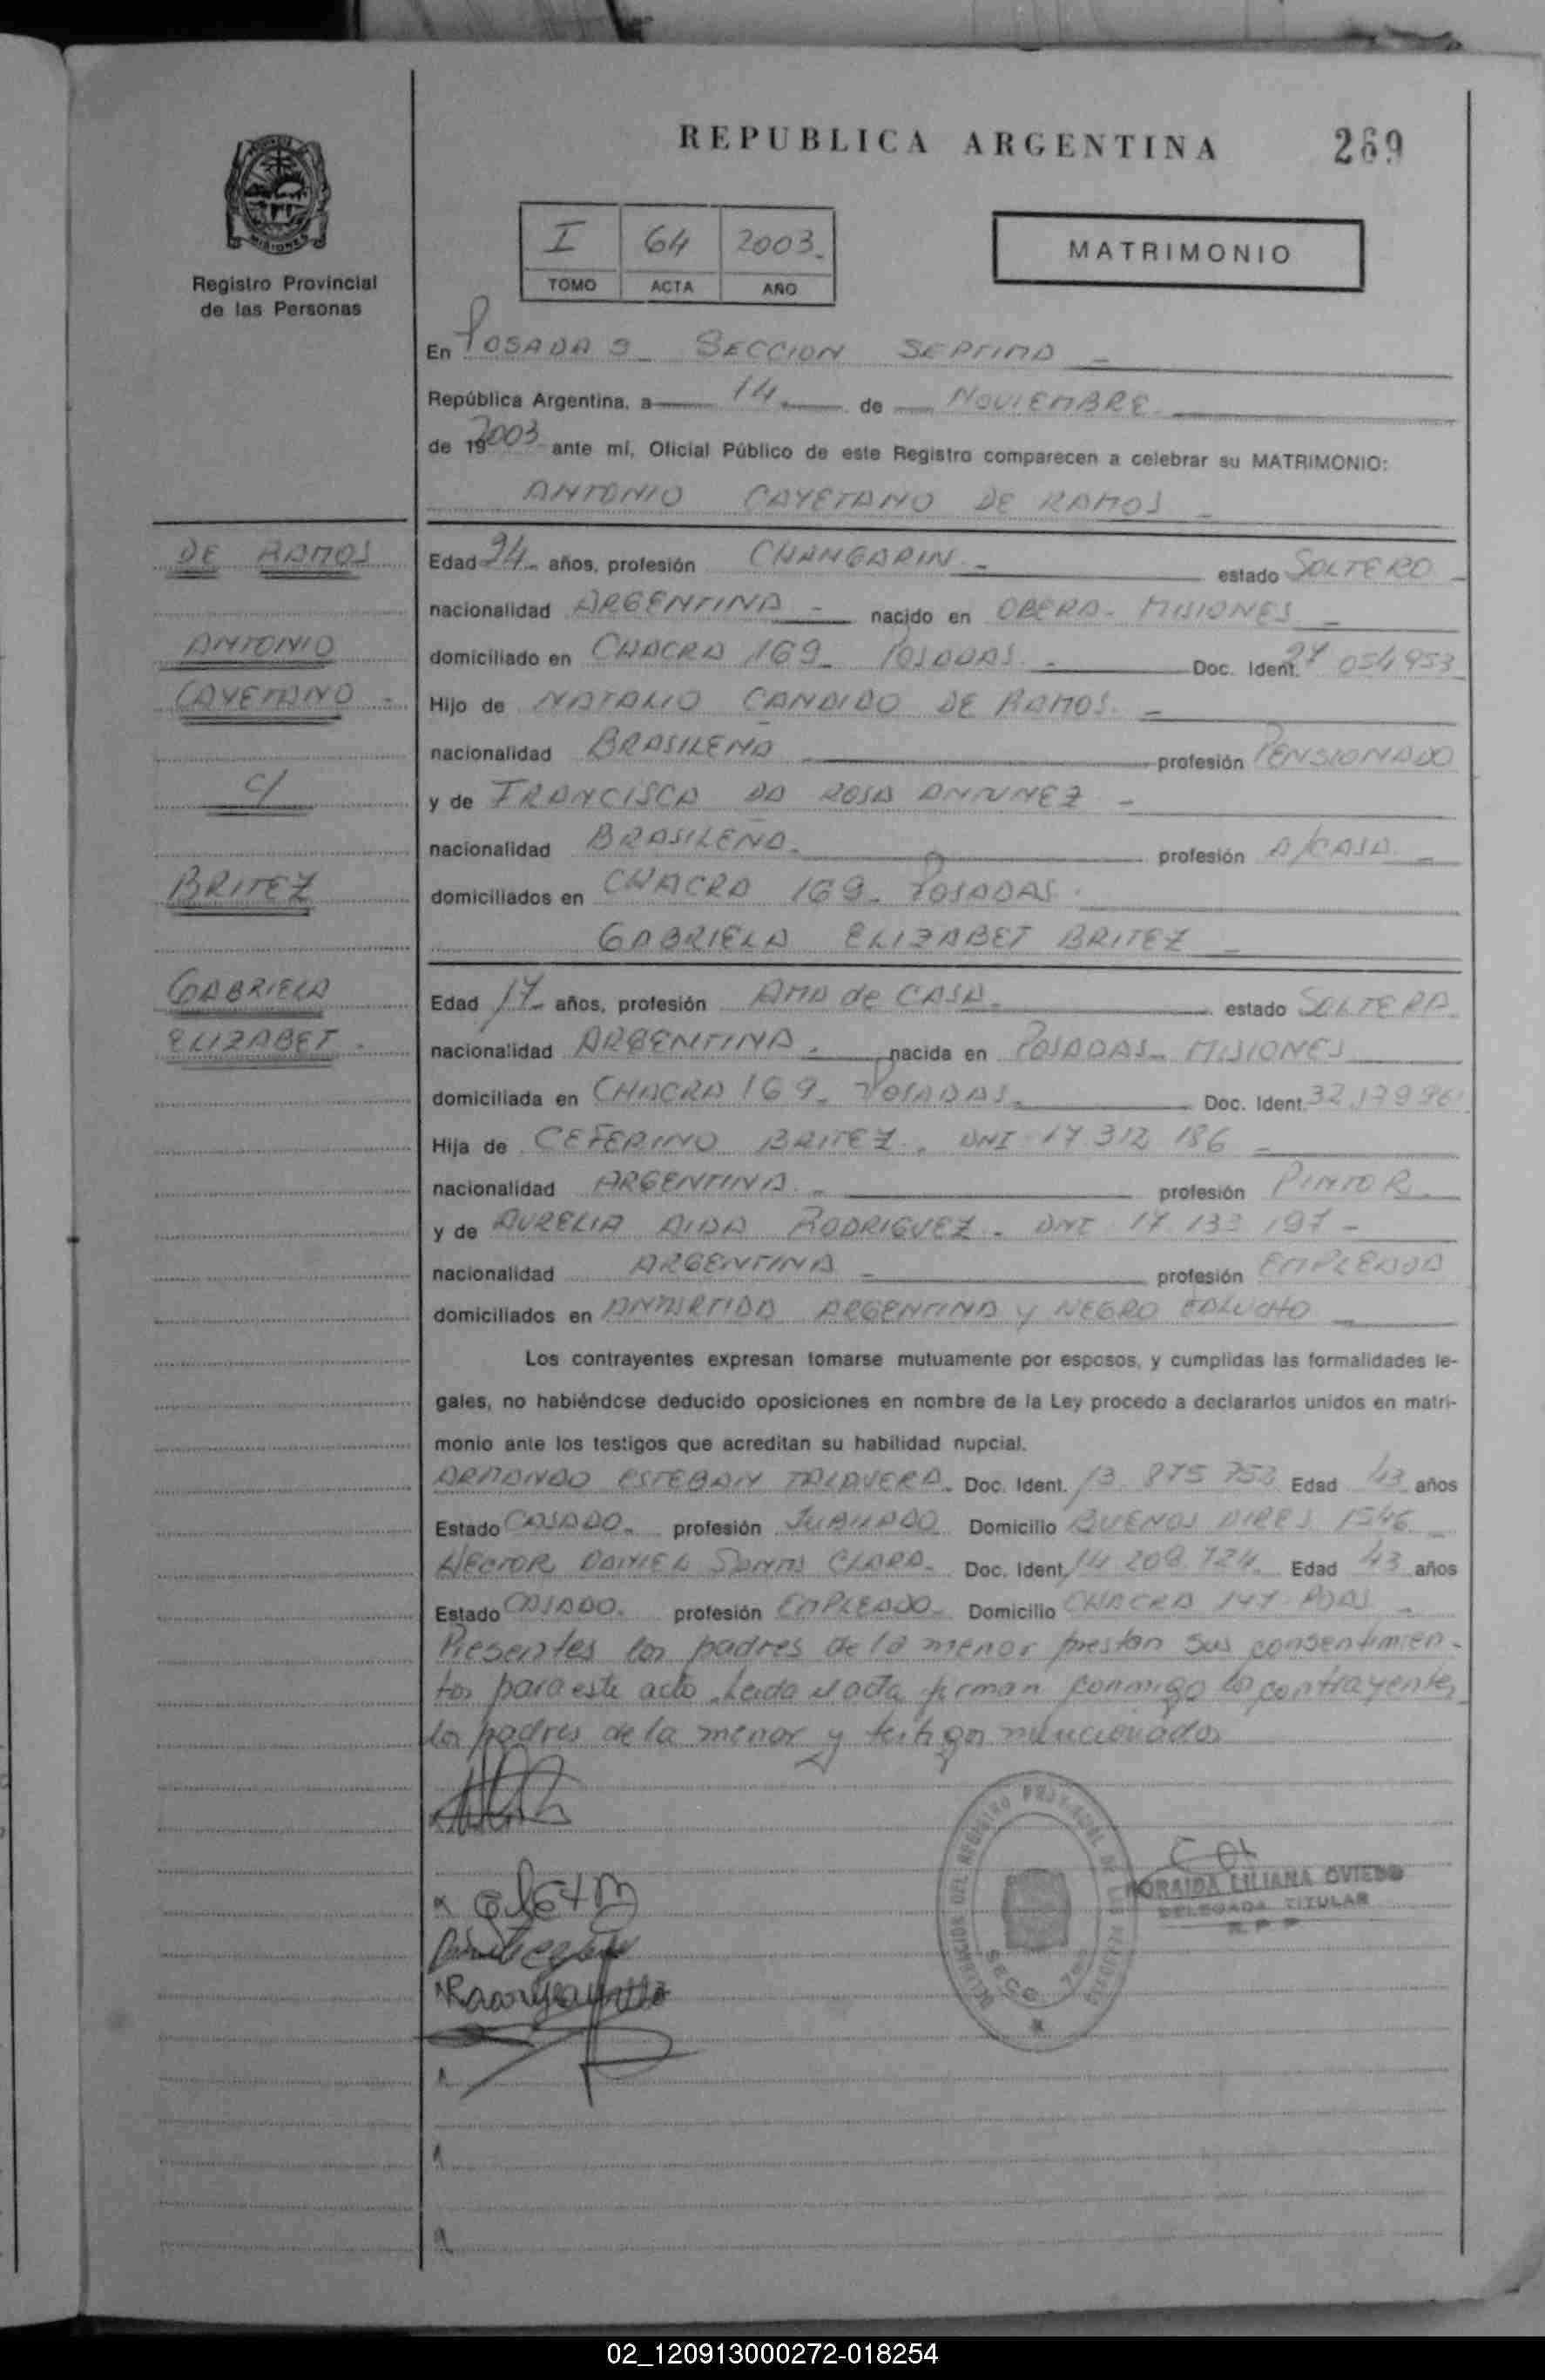 REPUBLICA ARGENTINA
269
MISIONES
Registro Provincial
de las Personas
I 64 2003.
TOMO ACTA AÑO
MATRIMONIO
En POSADAS SECCION SEPTIMA
República Argentina, a 14 de NOVIEMBRE
de 19 2003 ante mí, Oficial Público de este Registro comparecen a celebrar su MATRIMONIO:
ANTONIO CAYETANO DE RAMOS
DE RAMOS
ANTONIO
CAYETANO
c/
BRITEZ
GABRIELA
ELIZABET
Edad 24 años, profesión CHANGARIN estado SOLTERO
nacionalidad ARGENTINA nacido en OBERA - MISIONES
domiciliado en CHACRA 169 - POSADAS Doc. Ident. 27 054 953
Hijo de NATALIO CANDIDO DE RAMOS
nacionalidad BRASILEÑA profesión PENSIONADO
y de FRANCISCA DA ROSA ANTUNEZ
nacionalidad BRASILEÑA profesión A/CASA
domiciliados en CHACRA 169 - POSADAS
GABRIELA ELIZABET BRITEZ
Edad 17 años, profesión AMA de CASA estado SOLTERA
nacionalidad ARGENTINA nacida en POSADAS - MISIONES
domiciliada en CHACRA 169 - POSADAS Doc. Ident.
Hija de CEFERINO BRITEZ - DNI 17 312 186
nacionalidad ARGENTINA profesión PINTOR
y de AURELIA AIDA RODRIGUEZ - DNI 17 133 197
nacionalidad ARGENTINA profesión EMPLEADA
domiciliados en ANTARTIDA ARGENTINA y NEGRO FALUCHO
Los contrayentes expresan tomarse mutuamente por esposos, y cumplidas las formalidades le-
gales, no habiéndose deducido oposiciones en nombre de la Ley procedo a declararlos unidos en matri-
monio ante los testigos que acreditan su habilidad nupcial.
ARMANDO ESTEBAN TALAVERA Doc. Ident. 13 875 753 Edad 43 años
Estado CASADO profesión JUBILADO Domicilio BUENOS AIRES 1546
HECTOR DANIEL SANTA CLARA Doc. Ident 14 208 724 Edad 43 años
Estado CASADO profesión EMPLEADO Domicilio CHACRA 147 - PDAS
Presentes los padres de la menor prestan sus consentimien-
tos para este acto. Leida el acta firman conmigo los contrayentes,
los padres de la menor y testigos mencionados
ZORAIDA LILIANA OVIEDO
DELEGADA TITULAR
R. P. P.
DELEGACION DEL REGISTRO PROVINCIAL DE LAS PERSONAS
SECC. 7ma
02_120913000272-018254